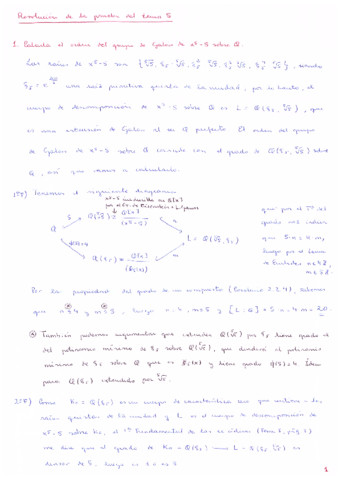 Resolución de la prueba del tema 5
1. Calcula el orden del grupo de Galois de x⁵-5 sobre Q.
Las raíces de x⁵-5 son {⁵√5, ξ₅·⁵√5, ξ₅²·⁵√5, ξ₅³·⁵√5, ξ₅⁴·⁵√5}, siendo
una raíz primitiva quinta de la unidad, por lo tanto, el
cuerpo de descomposición de x⁵-5 sobre Q es L = Q(ξ₅, ⁵√5), que
es una extensión de Galois al ser Q perfecto. El orden del grupo
de Galois de x⁵-5 sobre Q coincide con el grado de Q(ξ₅, ⁵√5) sobre
Q, así que vamos a calcularlo.
Tenemos el siguiente diagrama
x⁵-5 irreducible en Q[x]
por el Cr. de Eisenstein
5 Q(⁵√5) ≅ Q[x]/(x⁵-5) n
Q
L = Q(⁵√5, ξ₅)
Q(ξ₅) ≅ Q[x]/(Φ₅(x)) m
que por el
grado nos indica
que 5·n = 4·m,
luego por el lema
de Euclides n∈4Z,
m∈5Z.
Por la propiedad del grado de un compuesto (Ejercicio 2.2.9), sabemos
que n≤4 y m≤5, luego n=4, m=5 y [L:Q] = 5·n = 4·m = 20.
También podemos argumentar que extender Q(⁵√5) por ξ₅ tiene grado el
del polinomio mínimo de ξ₅ sobre Q(⁵√5), que dividirá al polinomio
mínimo de ξ₅ sobre Q que es Φ₅(x) y tiene grado φ(5)=4. Ídem
para Q(ξ₅) extendido por ⁵√5.
Como K₀ = Q(ξ₅) es un cuerpo de característica cero que contiene las
raíces quintas de la unidad y L es el cuerpo de descomposición de
x⁵-5 sobre K₀, el
nos dice que el grado de K₀ = Q(ξ₅) L = Q(ξ₅, ⁵√5) es
divisor de 5, luego
1